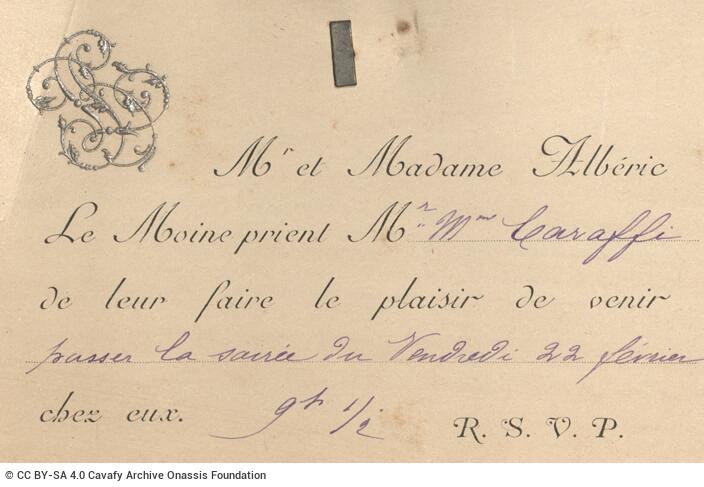 Mr et Madame Albéric
Le Moine prient Mr Mme Caraffi
de leur faire le plaisir de venir
passer la soirée du Vendredi 22 février
chez eux. 9h 1/2 R. S. V. P.
© CC BY-SA 4.0 Cavafy Archive Onassis Foundation